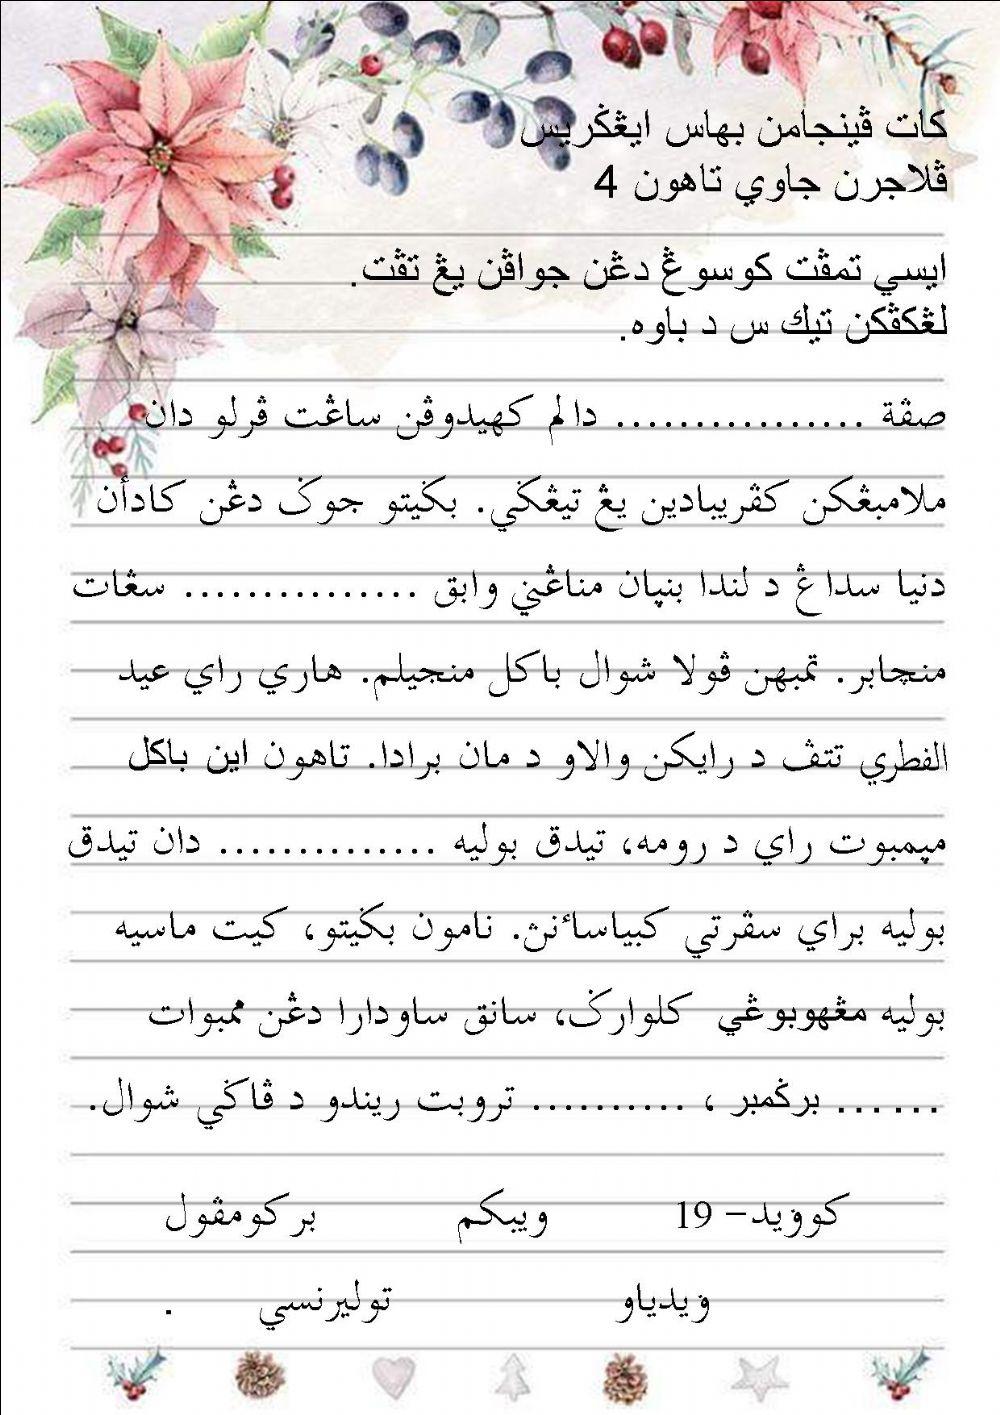 کات ڤينجامن بهاس ايڠڬريس
ڤلاجرن جاوي تاهون 4
ايسي تمڤت کوسوڠ دڠن جواڤن يڠ تڤت.
لڠکڤکن تيك س د باوه.
صڤة ................ دالم کهيدوڤن ساڠت ڤرلو دان
ملامبڠکن کڤريبادين يڠ تيڠڬي. بڬيتو جوݢ دڠن کادأن
دنيا سداڠ د لندا بنڽان مناڠني وابق ............... سڠات
منچابر. تمبهن ڤولا شوال باکل منجيلم. هاري راي عيد
الفطري تتڤ د رايکن والاو د مان برادا. تاهون اين باکل
مڽمبوت راي د رومه، تيدق بوليه .............. دان تيدق
بوليه براي سڤرتي کبياساٴنڽ. نامون بڬيتو، کيت ماسيه
بوليه مڠهوبوڠي کلوارݢ، سانق ساودارا دڠن ممبوات
...... برݢمبر ، .......... تروبت ريندو د ڤاݢي شوال.
کوۏيد- 19 ويبکم برکومڤول
ۏيدياو توليرنسي .